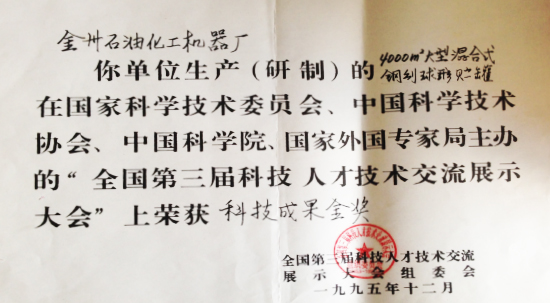 金州石油化工机器厂
你单位生产(研制)的 4000m³大型混合式
钢制球形贮罐
在国家科学技术委员会、中国科学技术
协会、中国科学院、国家外国专家局主办
的“全国第三届科技人才技术交流展示
大会”上荣获 科技成果金奖
全国第三届科技人才技术交流
展示大会组委会
一九九五年十二月